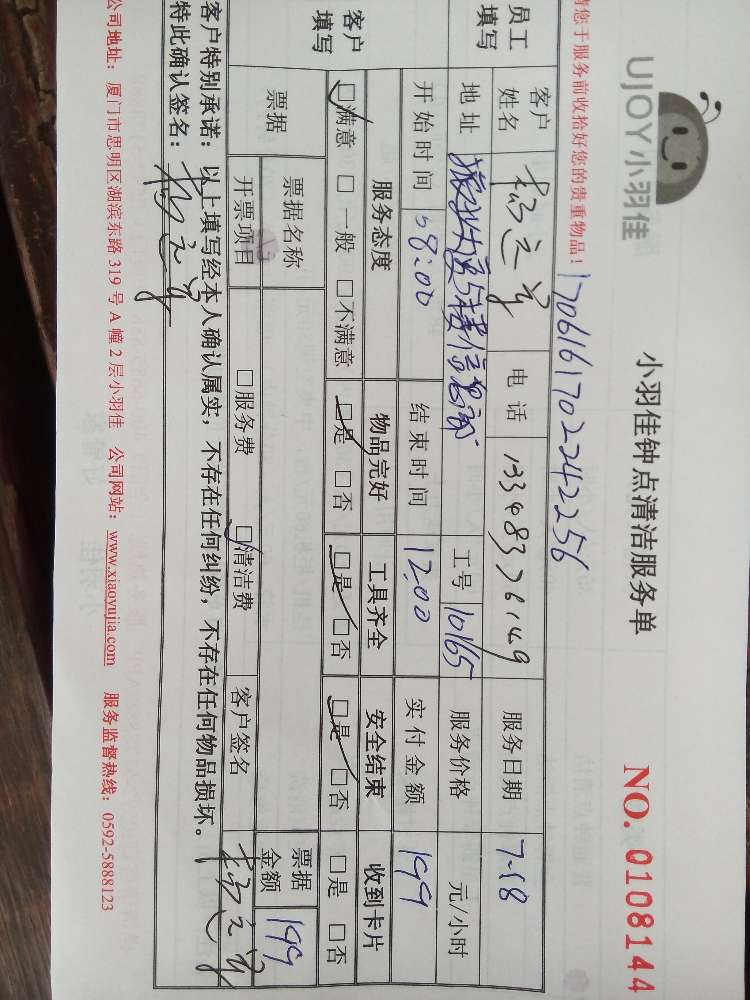 UJOY小羽佳
小羽佳钟点清洁服务单
NO. 0108144
请您于服务前收拾好您的贵重物品！
170616170224 2256
员工填写
客户姓名 电话 服务日期 7-18
地址 工号 10165 服务价格 元/小时
开始时间 08:00 结束时间 12:00 实付金额 199
客户填写
服务态度 物品完好 工具齐全 安全结束 收到卡片
☑满意 □一般 □不满意 ☑是 □否 ☑是 □否 ☑是 □否 □是 □否
票据 票据名称 票据金额 199
开票项目 □服务费 ☑清洁费 客户签名
客户特别承诺：以上填写经本人确认属实，不存在任何纠纷，不存在任何物品损坏。
特此确认签名：
公司地址：厦门市思明区湖滨东路 319 号 A 幢 2 层小羽佳 公司网站：www.xiaoyujia.com 服务监督热线：0592-5888123